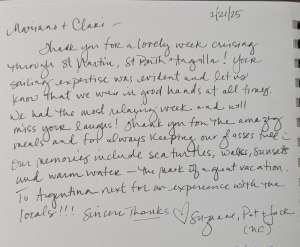 1/21/25
Mariano + Clare -
Thank you for a lovely week cruising
through St Martin, St Barth + Anguilla! Your
sailing expertise was evident and let us
know that we were in good hands at all times.
We had the most relaxing week and will
miss your laughs! Thank you for the amazing
meals and for always keeping our glasses full -
Our memories include sea turtles, walks, sunsets
and warm water - the mark of a great vacation.
To Argentina next for an experience with the
locals!!! Sincere Thanks Suzanne, Pat + Jack
(NC)